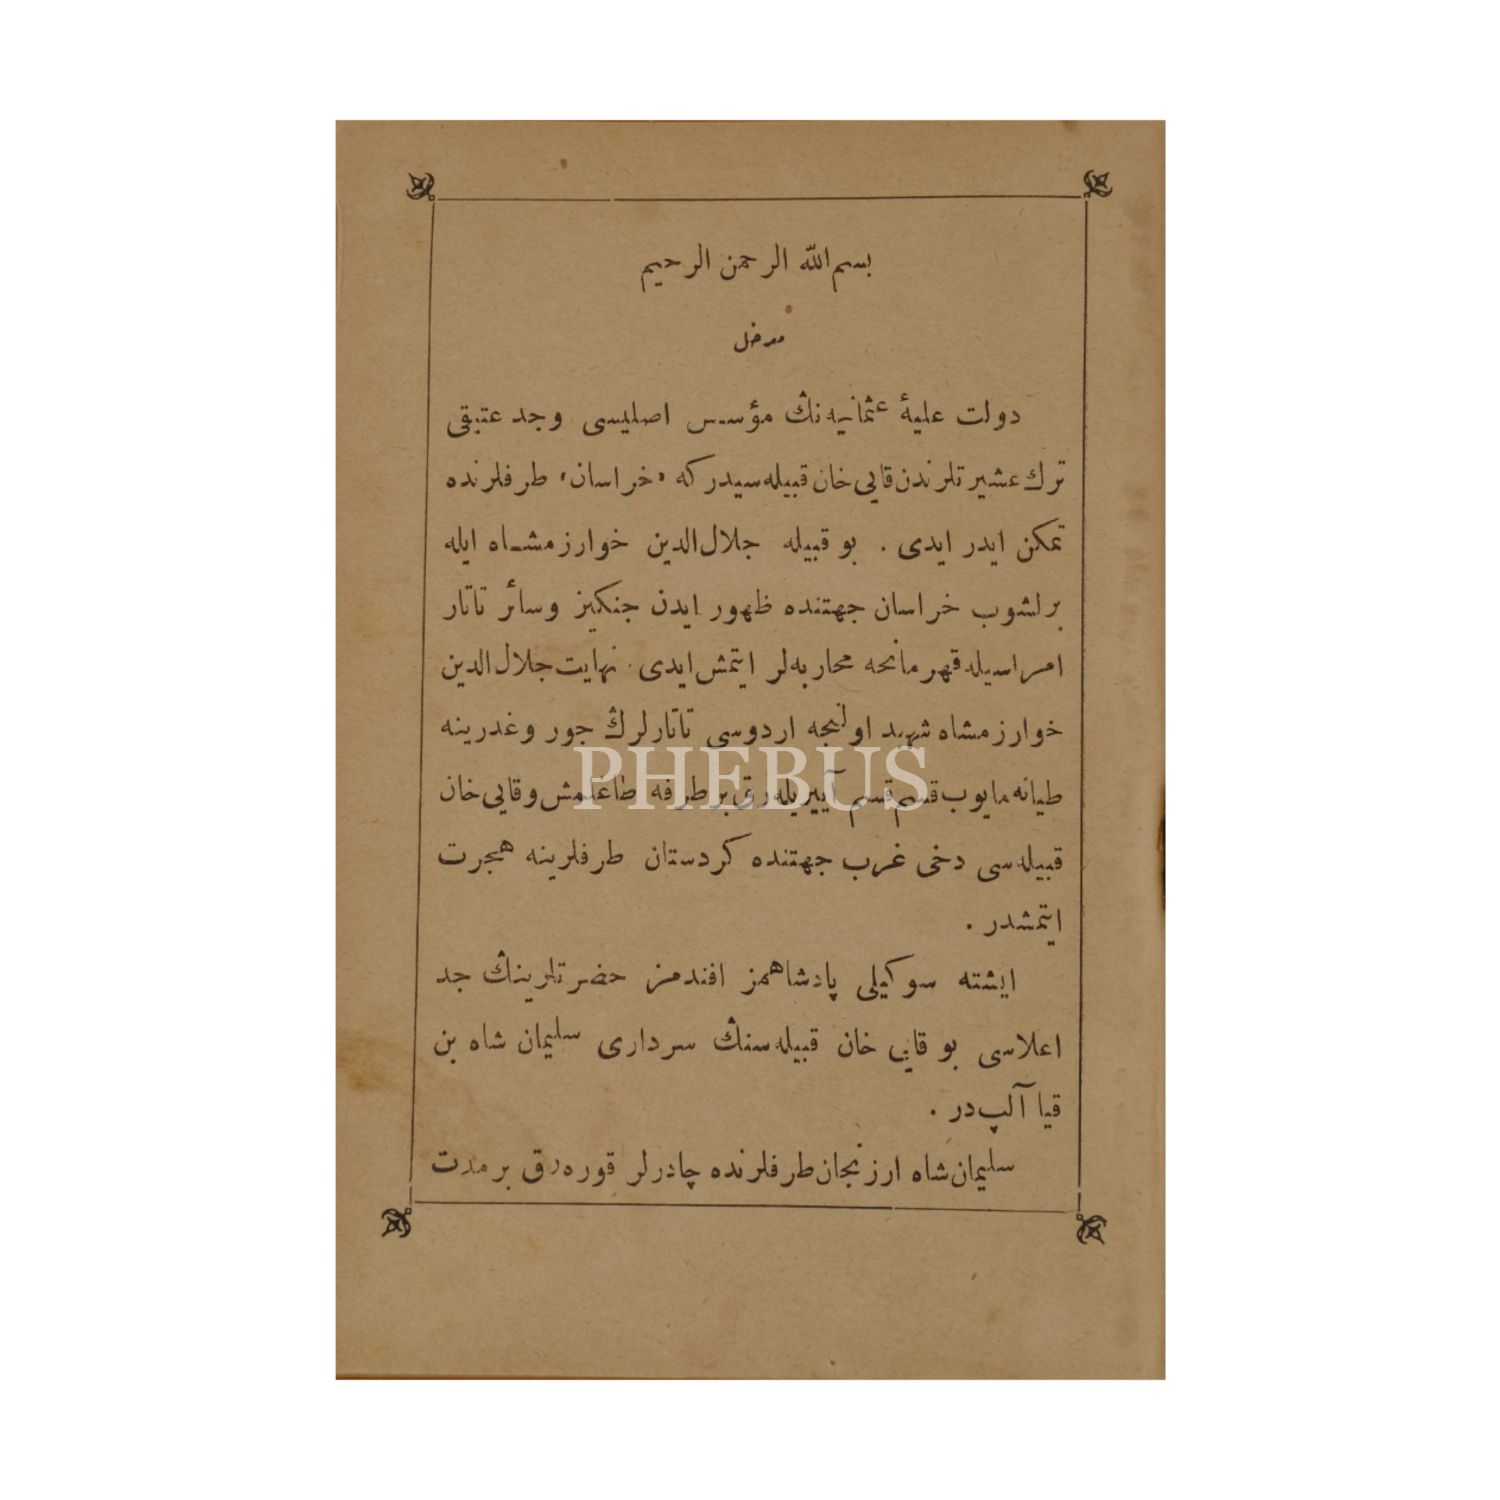 بسم الله الرحمن الرحيم
مدخل
دولت عليهٔ عثمانيه‌نڭ مؤسس اصليسى وجد عتيقى
ترك عشيرتلرندن قايى خان قبيله‌سيدركه «خراسان» طرفلرنده
تمكن ايدر ايدى . بو قبيله جلال‌الدين خوارزمشاه ايله
برلشوب خراسان جهتنده ظهور ايدن جنكيز وسائر تاتار
امراسيله قهرمانجه محاربه‌لر ايتمش ايدى . نهايت جلال‌الدين
خوارزمشاه شهيد اولنجه اردوسى تاتارلرڭ جور وغدرينه
PHEBUS
طيانه‌مايوب قسم قسم آييريله‌رق بر طرفه طاغلمش وقايى خان
قبيله‌سى دخى غرب جهتنده كردستان طرفلرينه هجرت
ايتمشدر .
ايشته سوكيلى پادشاهمز افندمز حضرتلرينڭ جد
اعلاسى بو قايى خان قبيله‌سنڭ سردارى سليمان شاه بن
قيا آلپ‌در .
سليمان شاه ارزنجان طرفلرنده چادرلر قوره‌رق بر مدت